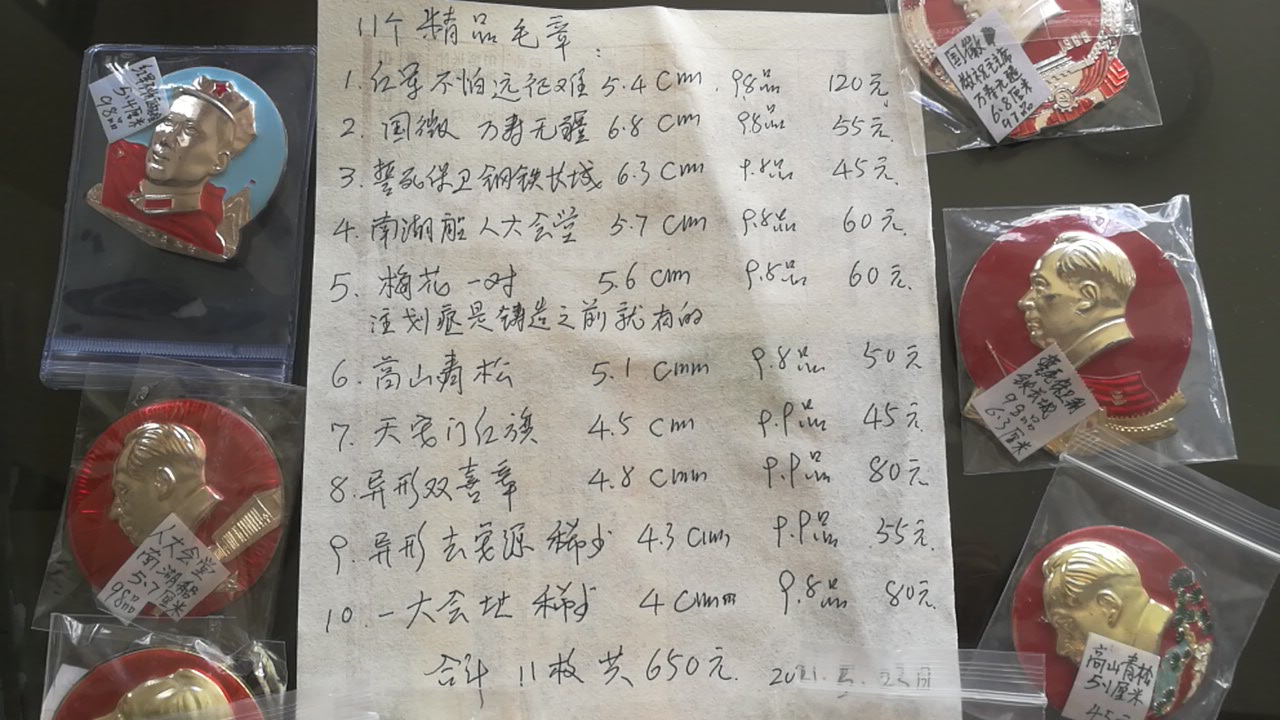 11个精品毛章:
1. 红军不怕远征难 5.4cm. 98品 120元
2. 国徽 万寿无疆 6.8cm 9.8品 55元.
3. 誓死保卫钢铁长城 6.3cm 9.8品 45元.
4. 南湖船人大会堂 5.7cm 9.8品 60元.
5. 梅花一对 5.6cm 9.8品 60元
注划痕是铸造之前就有的
6. 高山青松 5.1cm 9.8品 50元
7. 天安门红旗 4.5cm 9.9品 45元
8. 异形双喜章 4.8cm 9.9品 80元.
9. 异形去安源 稀少 4.3cm 9.9品 55元.
10. 一大会址 稀少 4cm 9.8品 80元.
合计 11枚共650元.
5.4厘米
98品
国徽
敬祝主席
万寿无疆
6.8厘米
97品
铁长城
6.3厘米
人大会堂
南湖船
5.7厘米
98品
高山青松
5.1厘米